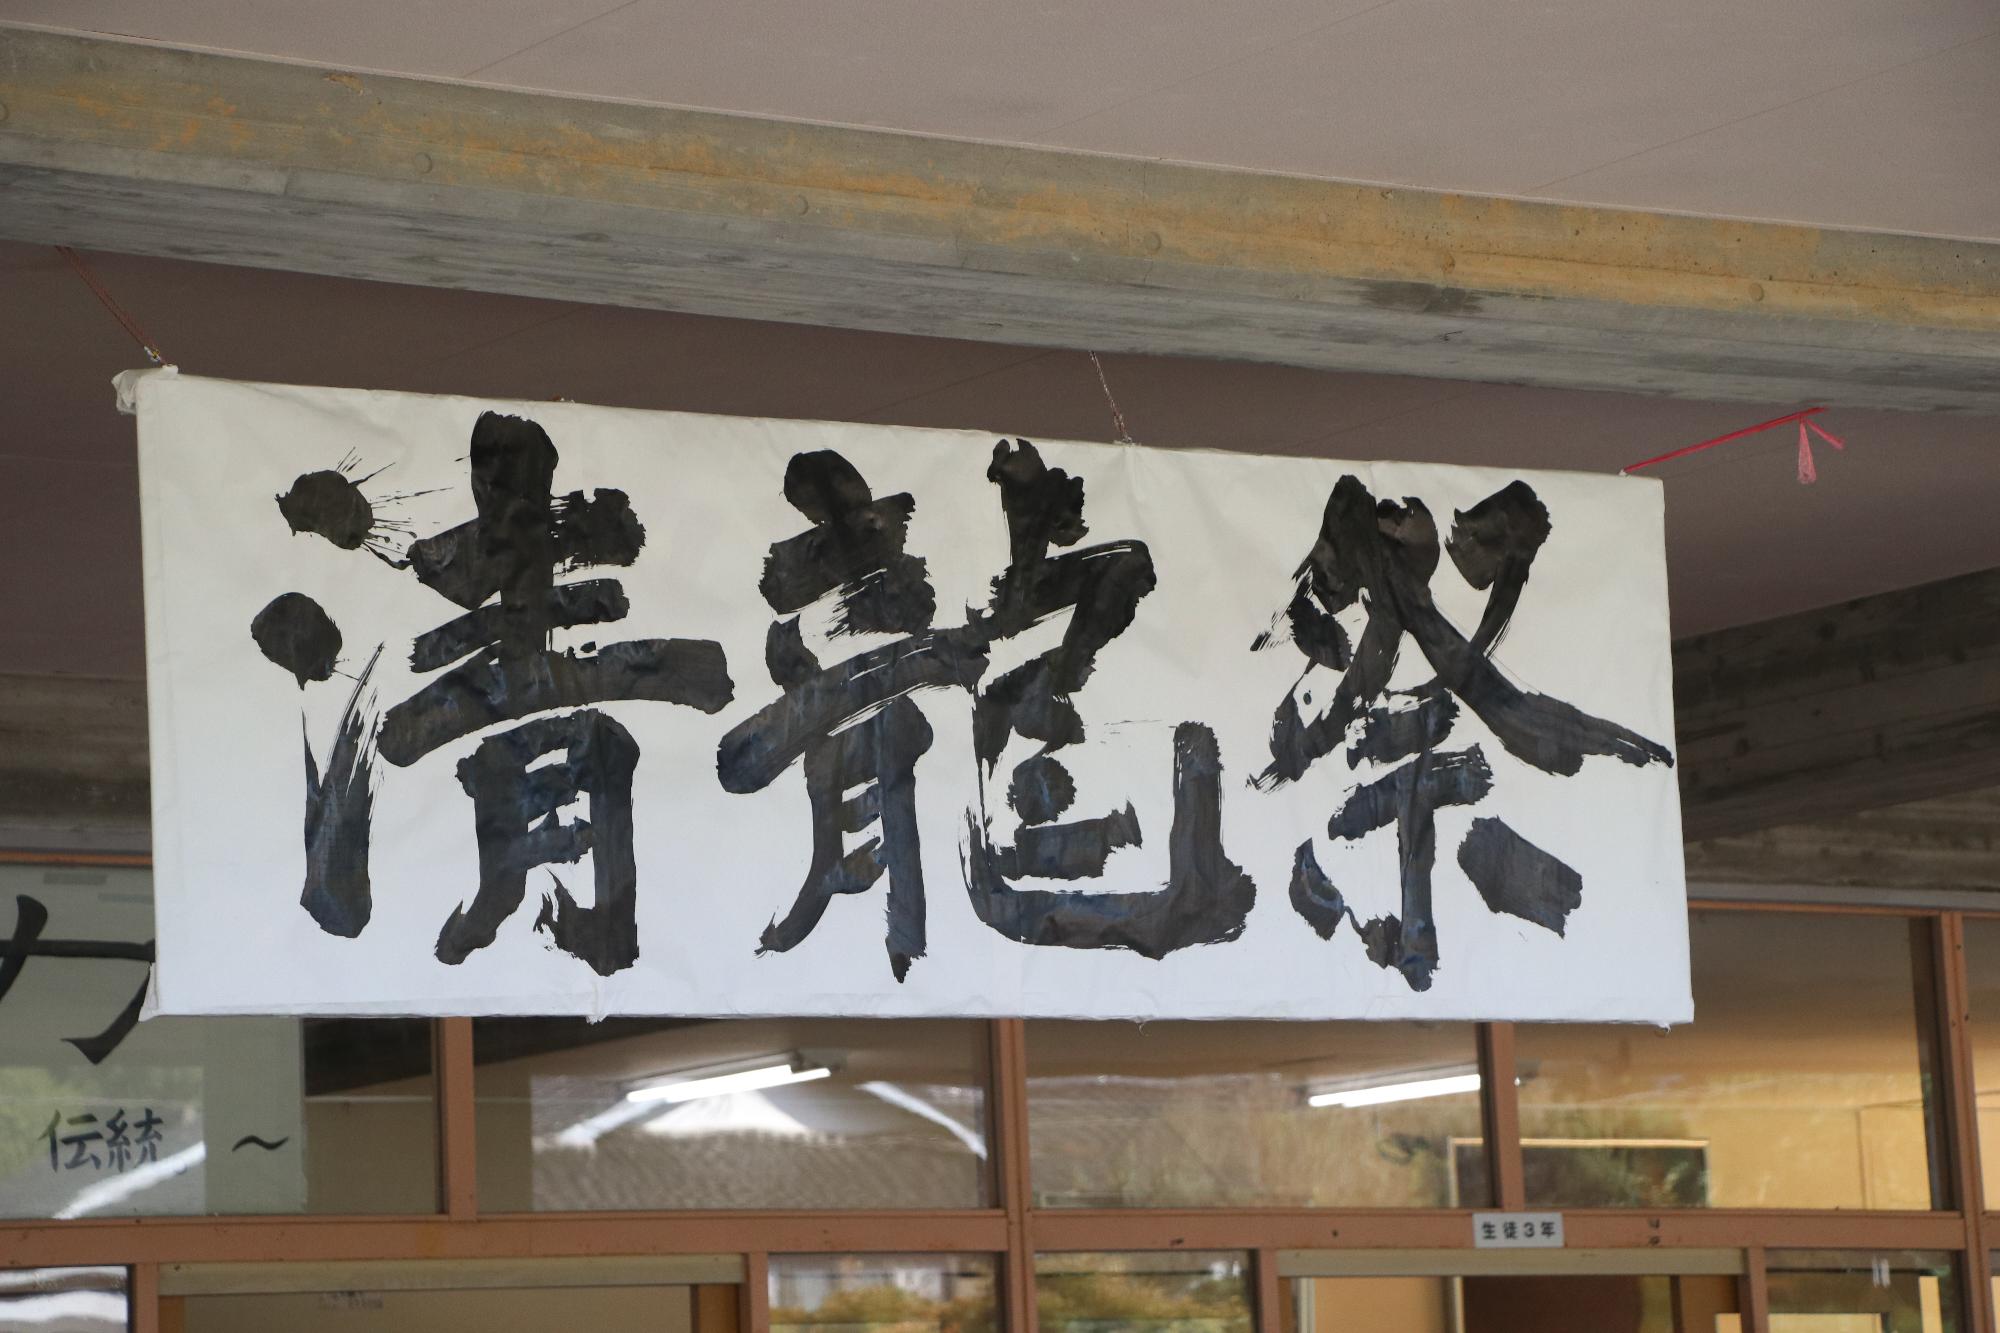 清龍祭
カ
伝統。～
生徒3年